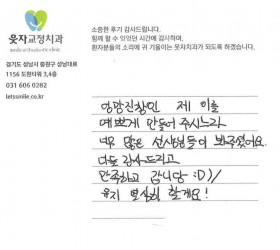 웃자교정치과
경기도 성남시 중원구 성남대로
1156 도원타워 3,4층
031 606 0282
letssmile.co.kr
소중한 후기 감사드립니다.
함께 할 수 있었던 시간에 감사하며,
환자분들의 소리에 귀 기울이는 웃자치과가 되도록 하겠습니다.
엉망진창인 제 이를
예쁘게 만들어 주시느라
너무 많은 선생님들이 봐주셨어요.
다들 감사드리고
만족하고 갑니당 :D)/
유지 열심히 할게요!